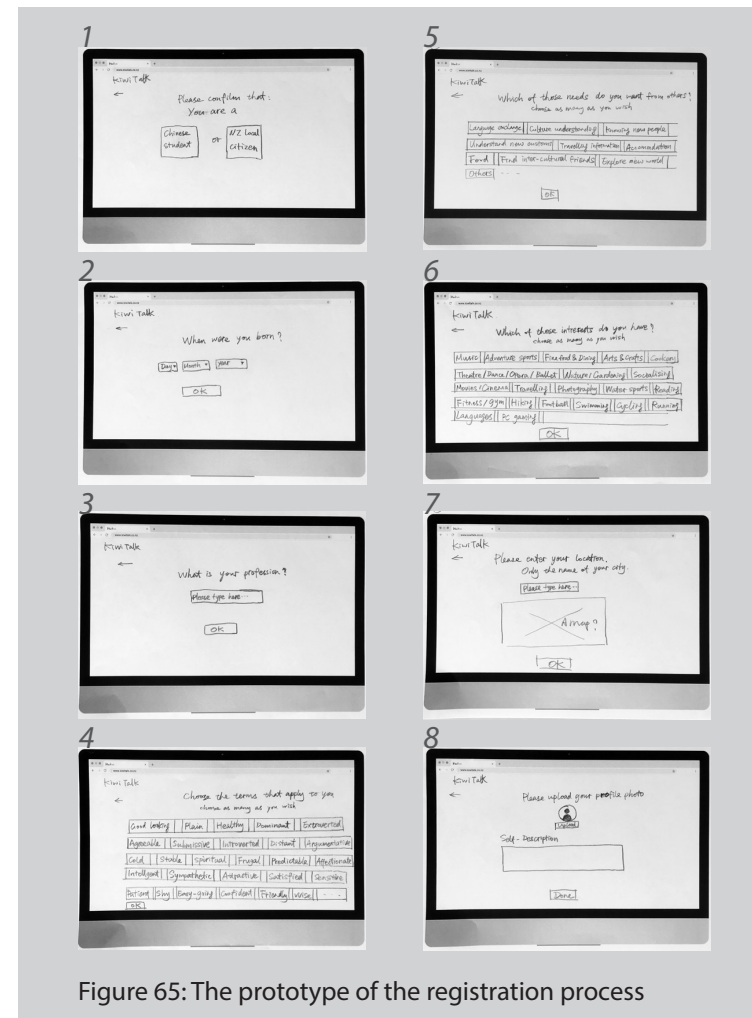 1
Kiwi Talk
←
Please confilm that:
You are a
Chinese student or NZ Local citizen
2
Kiwi Talk
←
When were you born?
Day Month Year
OK
3
Kiwi Talk
←
What is your profession?
Please type here...
OK
4
Kiwi Talk
←
Choose the terms that apply to you
choose as many as you wish
Good looking Plain Healthy Dominant Extroverted
Agreeable Submissive Introverted Distant Argumentative
Cold Stable Spiritual Frugal Predictable Affectionate
Intelligent Sympathetic Attractive Satisfied Sensitive
Patient Shy Easy-going Confident Friendly Wise ...
OK
5
Kiwi Talk
←
Which of those needs do you want from others?
choose as many as you wish
Language exchange Culture understanding Knowing new people
Understand new customs Travelling information Accommodation
Food Find inter-cultural friends Explore new world
Others ...
OK
6
Kiwi Talk
←
Which of these interests do you have?
choose as many as you wish
Music Adventure sports Fine food & Dining Arts & crafts Cooking
Theatre/Dance/Opera/Ballet Nature/Gardening Socialising
Movies/Cinema Travelling Photography Water sports Reading
Fitness/gym Hiking Football Swimming Cycling Running
Languages Pc gaming
OK
7
Kiwi Talk
←
Please enter your location.
Only the name of your city.
Please type here..
A map?
OK
8
Kiwi Talk
←
Please upload your profile photo
Upload
Self-Description
Done
Figure 65: The prototype of the registration process